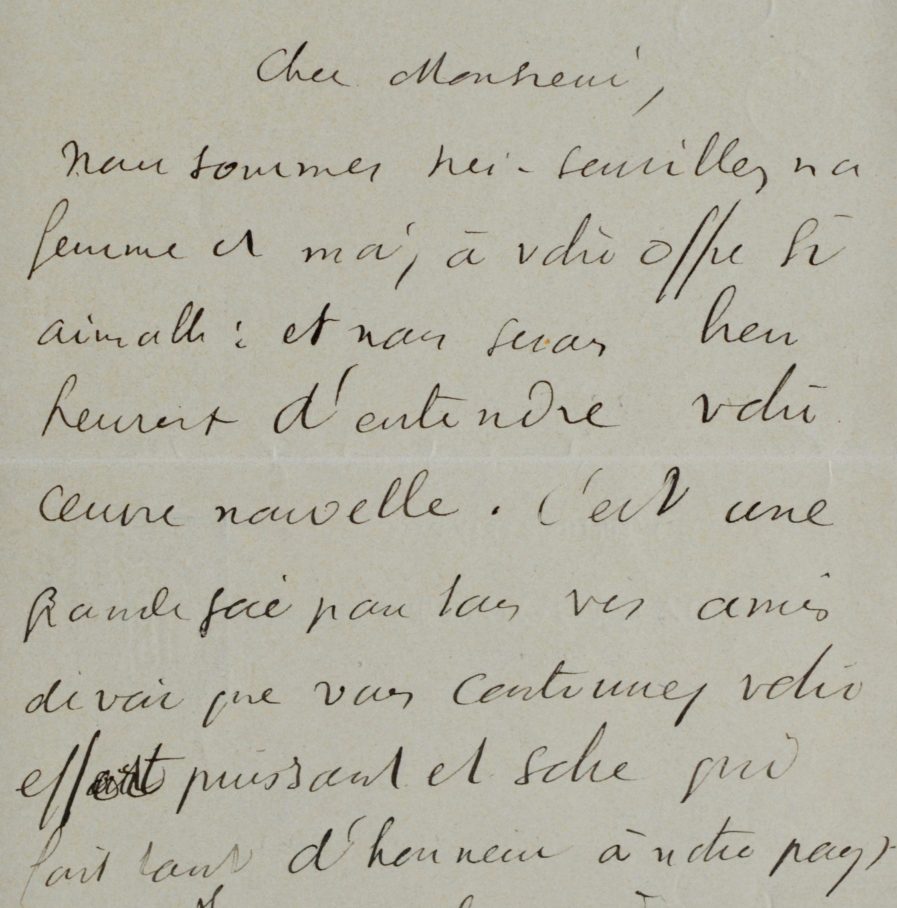 Cher Monsieur,
nous sommes très-sensibles, ma
femme et moi, à votre offre si
aimable : et nous serons bien
heureux d'entendre votre
œuvre nouvelle. C'est une
grande joie pour tous vos amis
de voir que vous continuez votre
effort puissant et sobre qui
fait tant d'honneur à notre pays